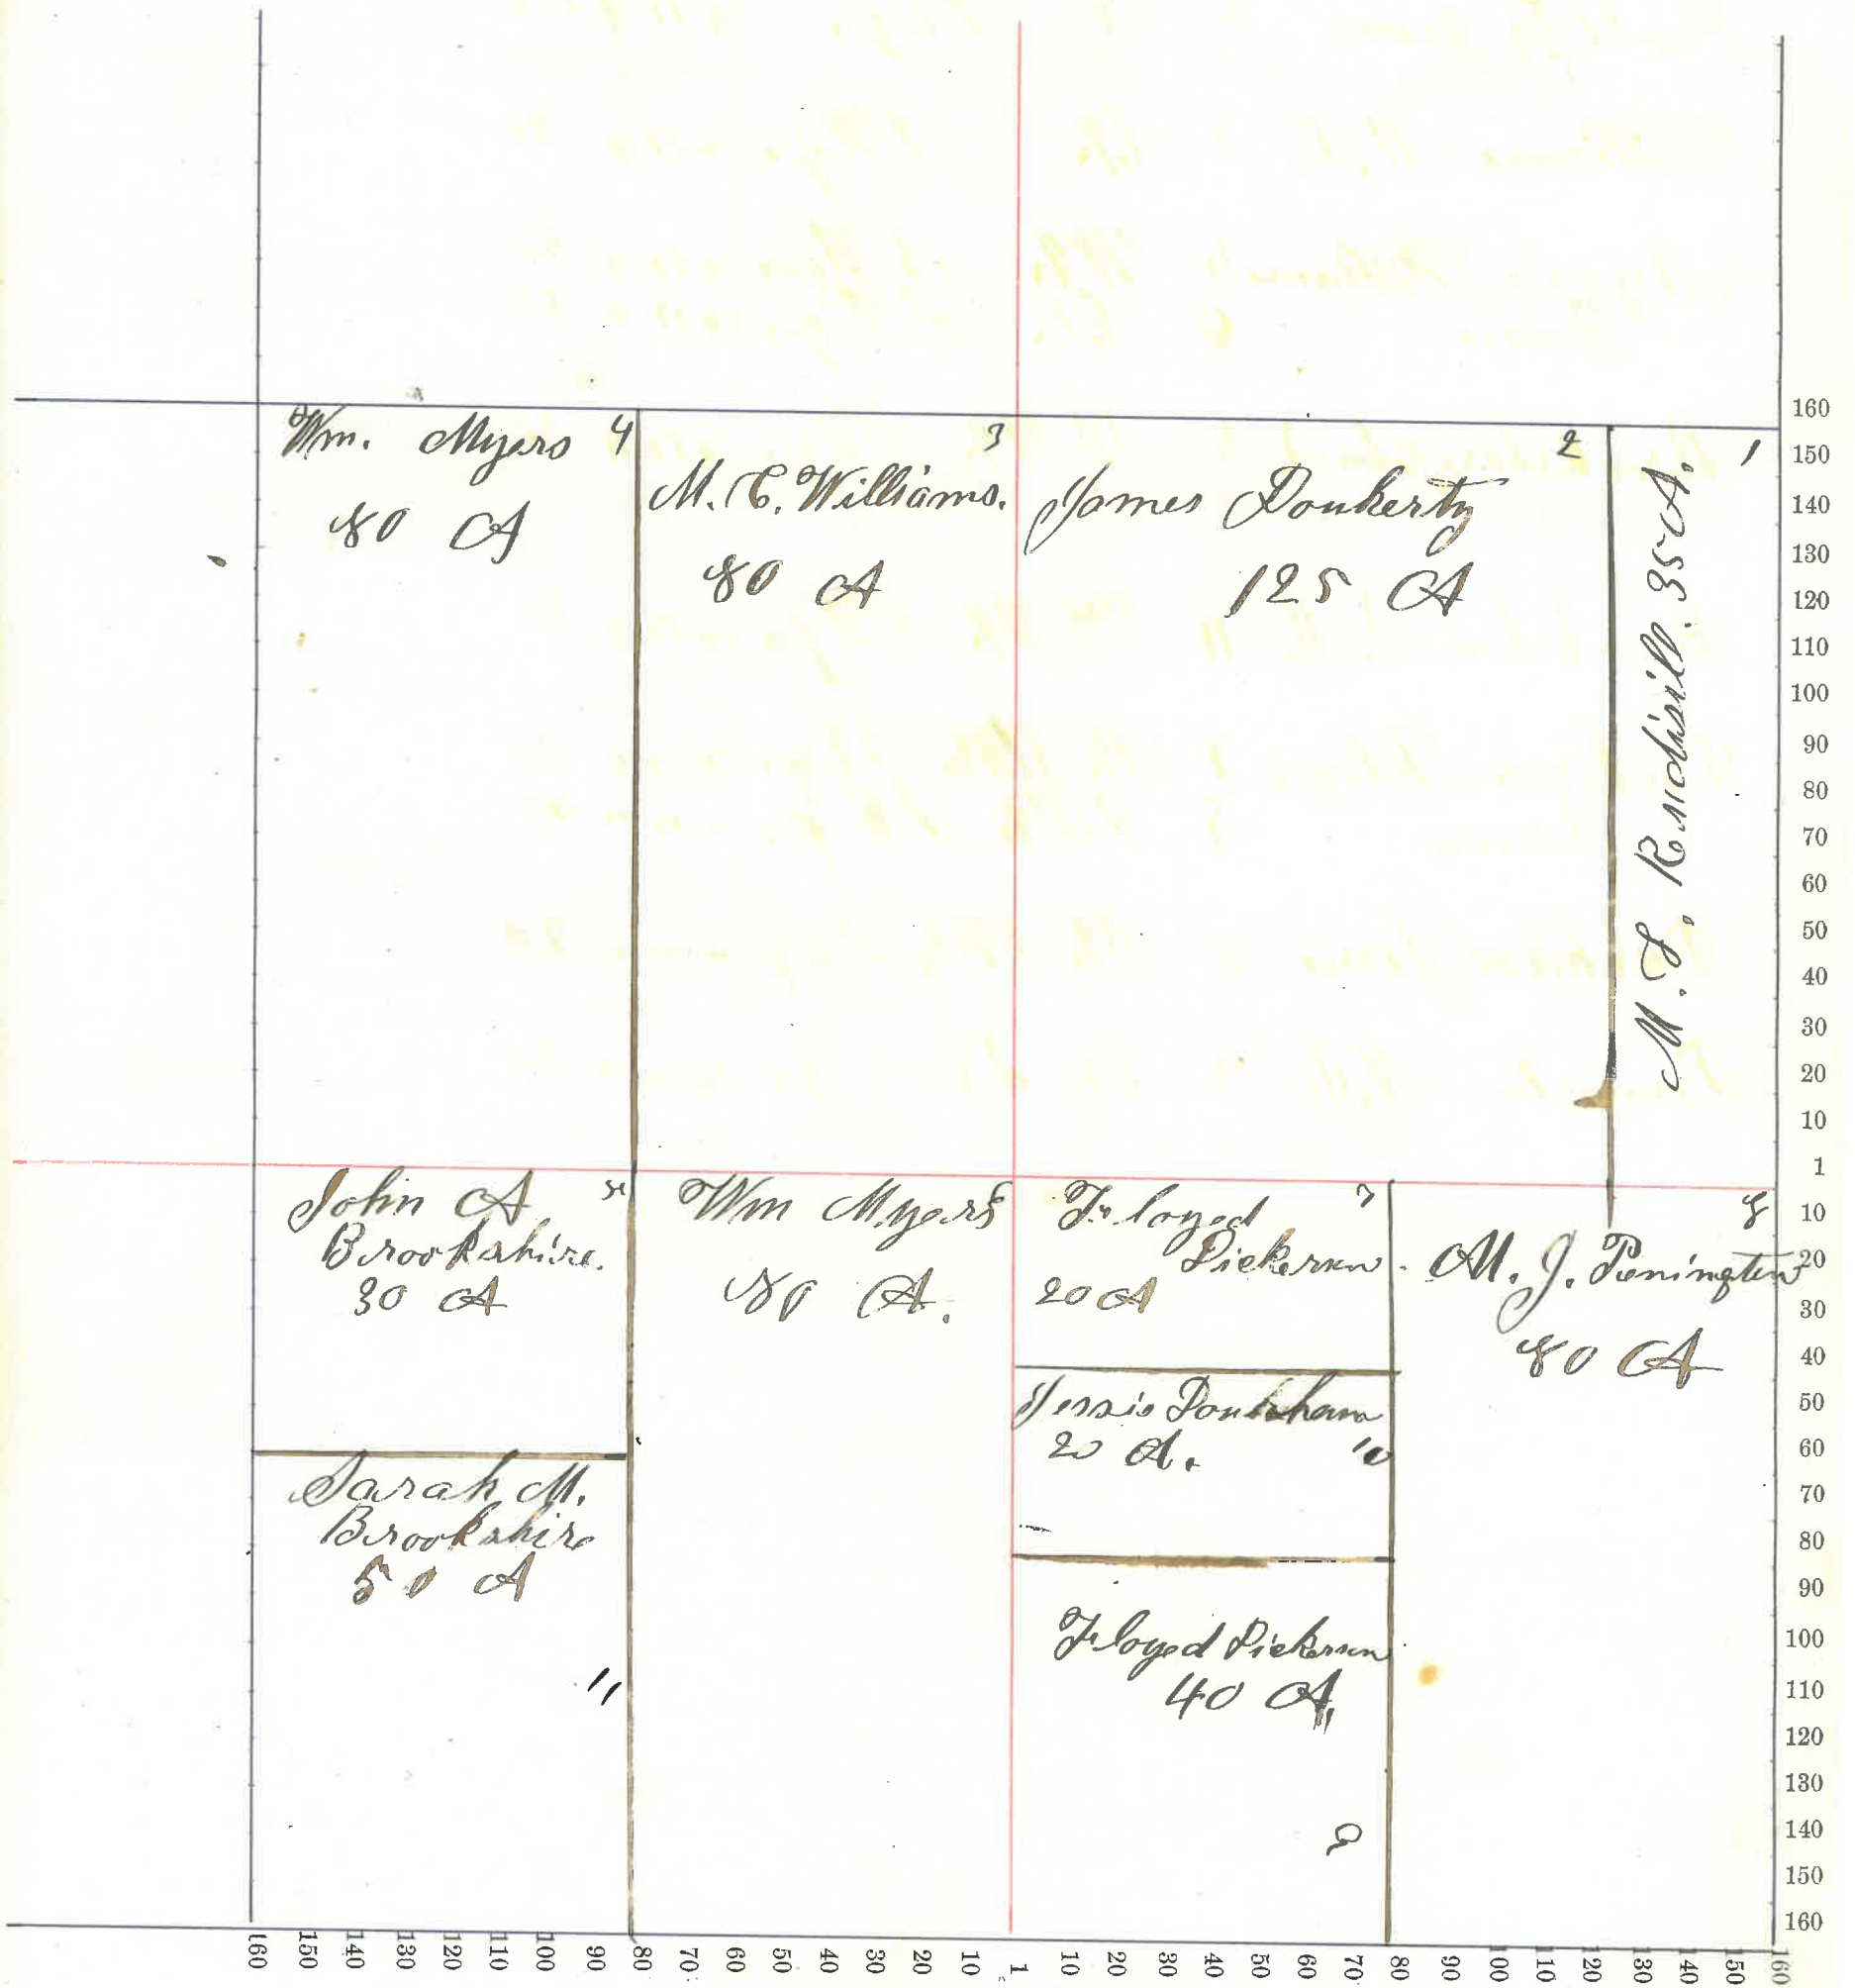 Wm. Myers 4
80 A
3
M. C. Williams.
80 A
2
James Doukerty
125 A
1
M. S. Rudisill. 35 A.
John A 5
Brookshire.
30 A
Wm Myers 6
80 A.
Floyed 7
Dickerson.
20 A
8
M. J. Penington
80 A
Jessie
20 A. 10
Sarah M.
Brookshire
50 A
11
Floyed Dickerson
40 A
9
160
150
140
130
120
110
100
90
80
70
60
50
40
30
20
10
1
10
20
30
40
50
60
70
80
90
100
110
120
130
140
150
160
160 150 140 130 120 110 100 90 80 70 60 50 40 30 20 10 1 10 20 30 40 50 60 70 80 90 100 110 120 130 140 150 160